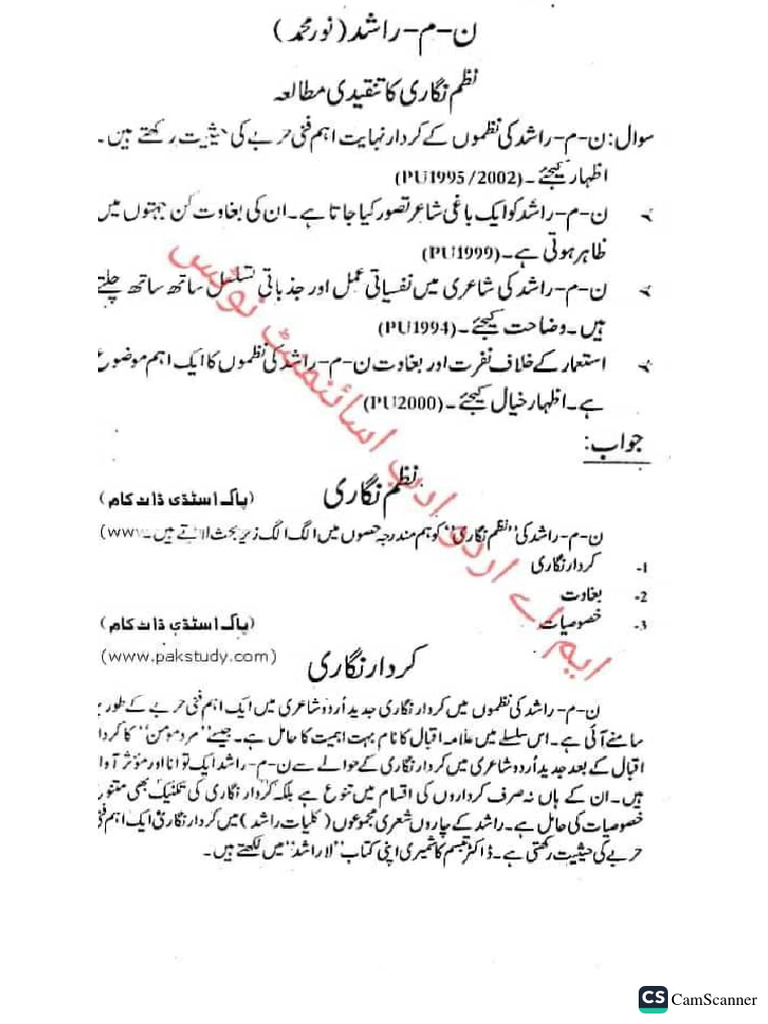 ن-م-راشد (نور محمد)
نظم نگاری کا تنقیدی مطالعہ
سوال: ن-م-راشد کی نظموں کے کردار نہایت اہم فنی حربے کی حیثیت رکھتے ہیں۔
اظہار کیجئے۔ (PU1995/2002)
ن-م-راشد کو ایک باغی شاعر تصور کیا جاتا ہے۔ ان کی بغاوت کن جہتوں میں
ظاہر ہوتی ہے۔ (PU1999)
ن-م-راشد کی شاعری میں نفسیاتی عمل اور جذباتی تسلسل ساتھ ساتھ چلتے
ہیں۔ وضاحت کیجئے۔ (PU1994)
استعمار کے خلاف نفرت اور بغاوت ن-م-راشد کی نظموں کا ایک اہم موضوع
ہے۔ اظہار خیال کیجئے۔ (PU2000)
جواب:
نظم نگاری
(پاک اسٹڈی ڈاٹ کام)
ن-م-راشد کی "نظم نگاری" کو ہم مندرجہ حصوں میں الگ الگ زیر بحث لاتے ہیں۔ (www
1- کردار نگاری
2- بغاوت
3- خصوصیات
(پاک اسٹڈی ڈاٹ کام)
(www.pakstudy.com)
کردار نگاری
ن-م-راشد کی نظموں میں کردار نگاری جدید اُردو شاعری میں ایک اہم فنی حربے کے طور پر
سامنے آئی ہے۔ اس سلسلے میں علامہ اقبال کا نام بہت اہمیت کا حامل ہے۔ جیسے "مرد مومن" کا کردا
اقبال کے بعد جدید اُردو شاعری میں کردار نگاری کے حوالے سے ن-م-راشد ایک توانا اور مؤثر آوا
ہیں۔ ان کے ہاں نہ صرف کرداروں کی اقسام میں تنوع ہے بلکہ کردار نگاری کی تکنیک بھی متنوع
خصوصیات کی حامل ہے۔ راشد کے چاروں شعری مجموعوں (کلیات راشد) میں کردار نگاری ایک اہم فنی
حربے کی حیثیت رکھتی ہے۔ ڈاکٹر تبسم کاشمیری اپنی کتاب "لا راشد" میں لکھتے ہیں۔
ایم اے اردو ادب اسائنمنٹ نوٹس
CS CamScanner